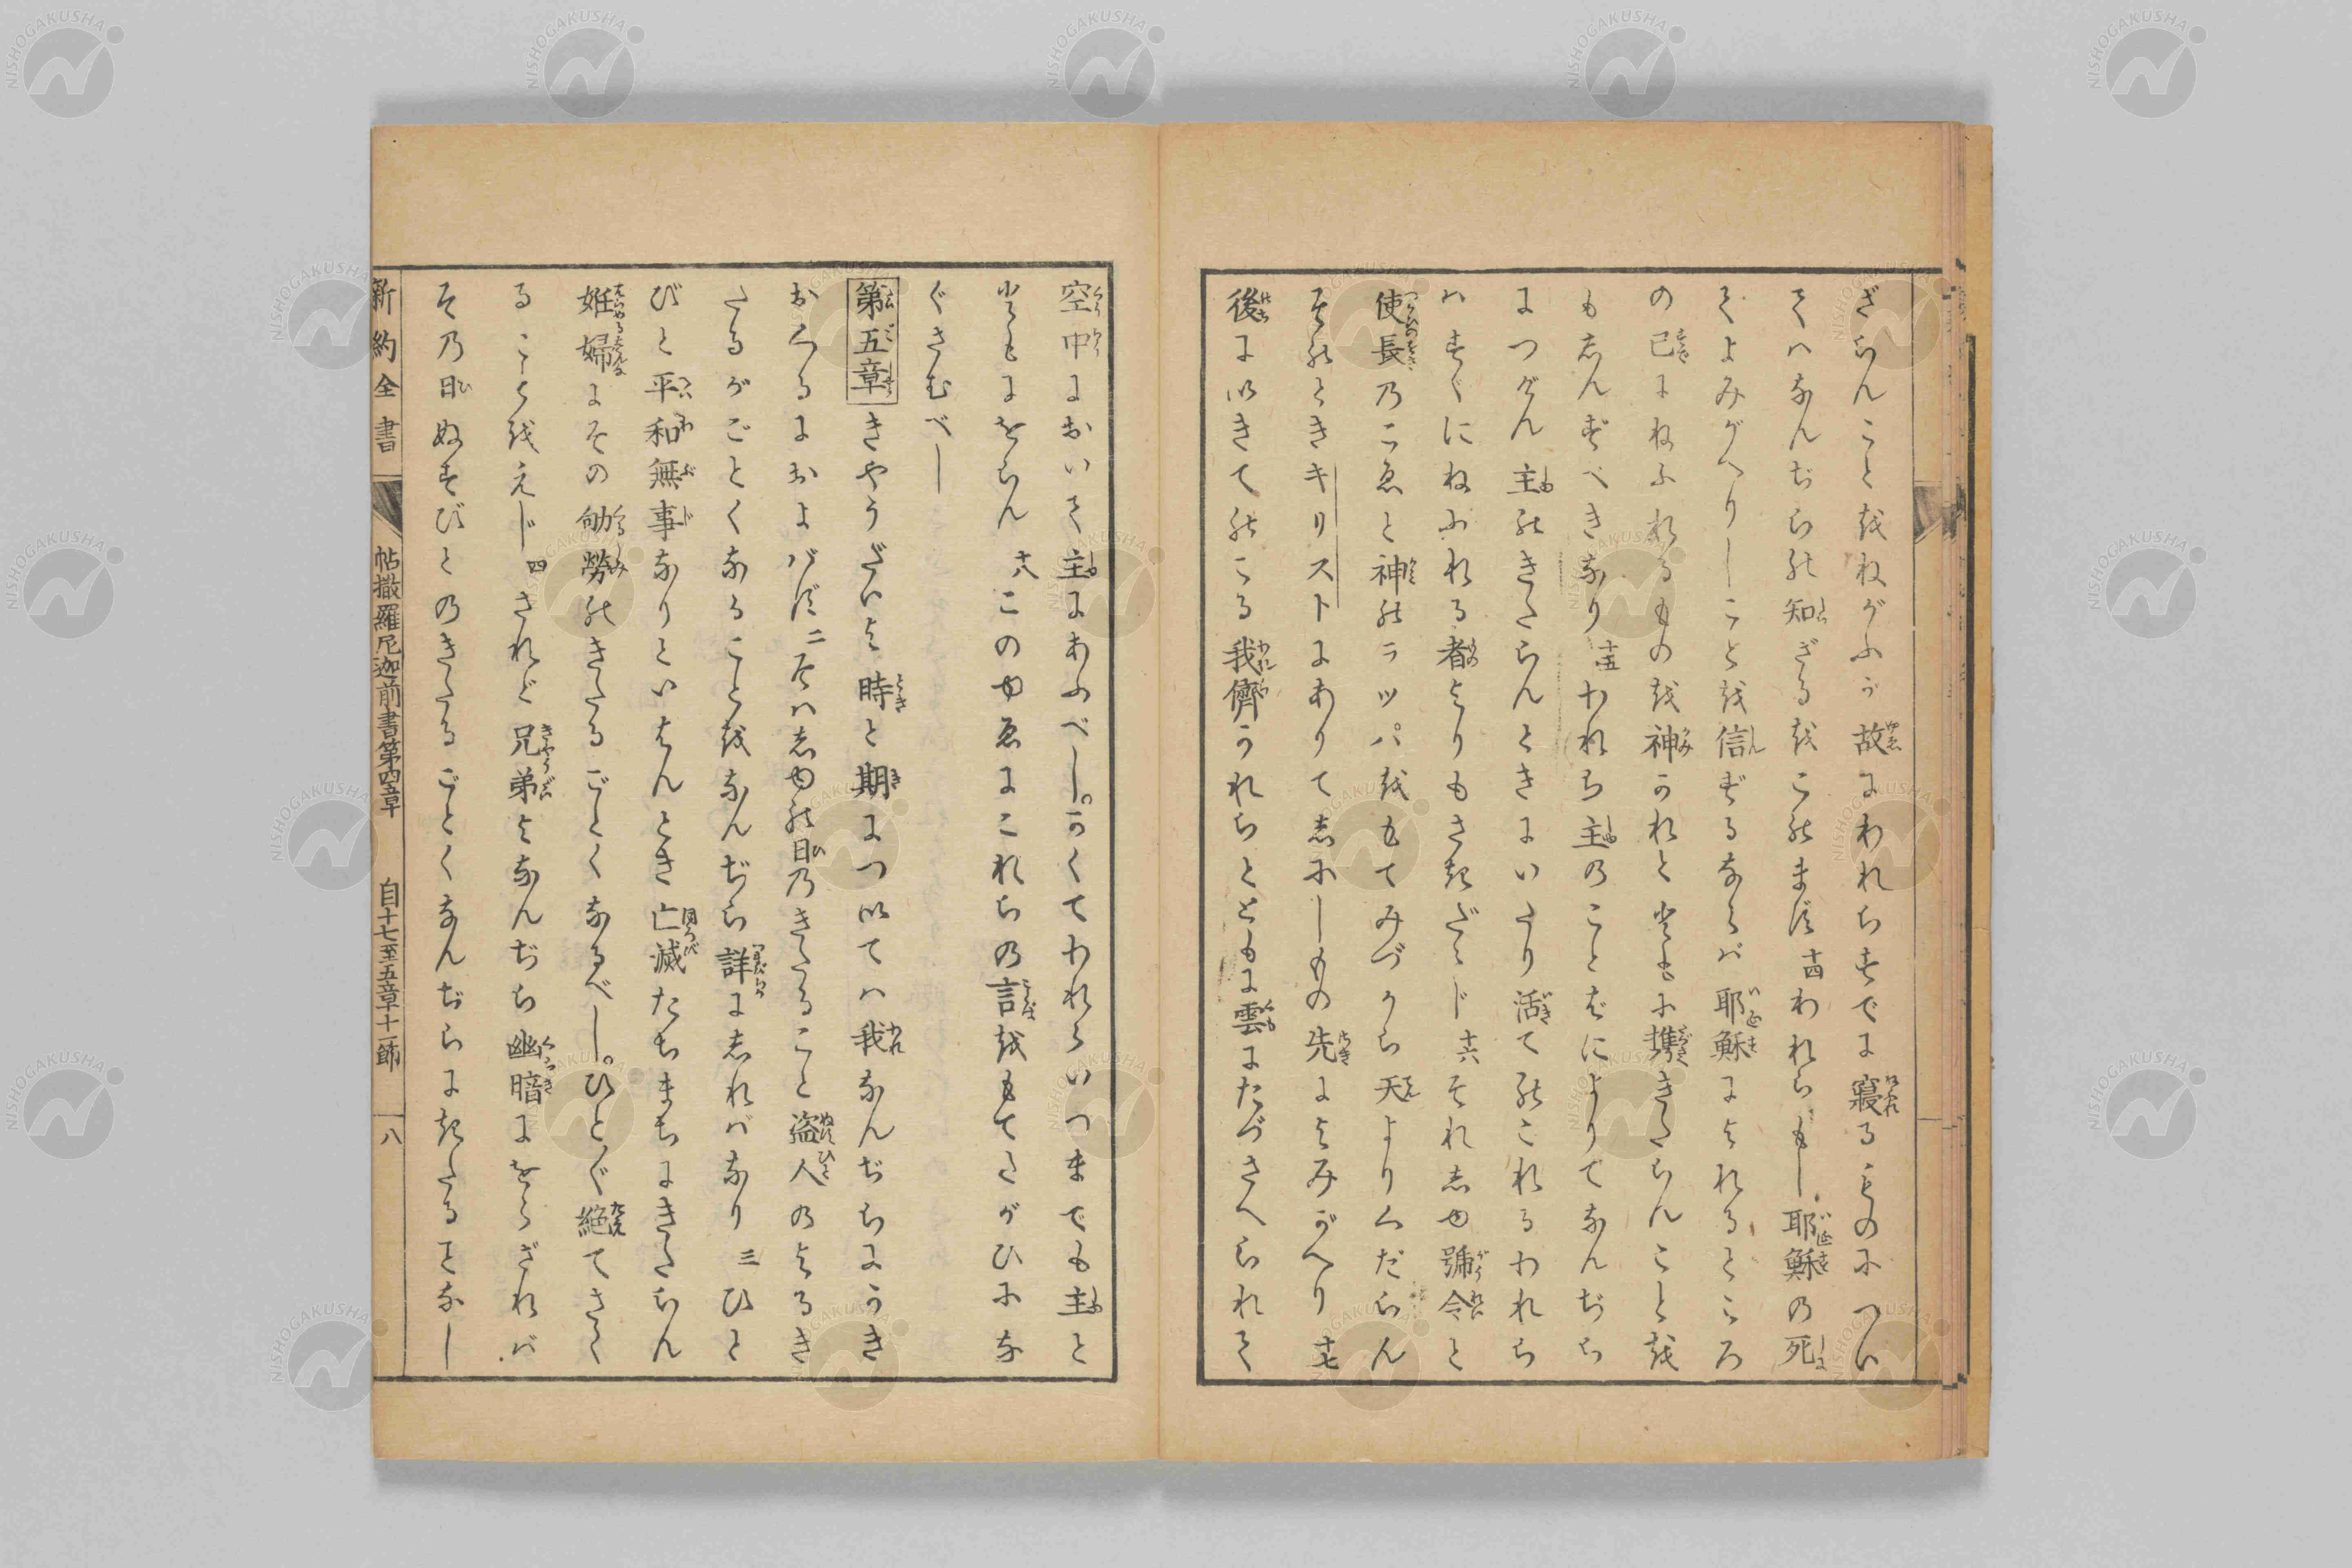 ざらんことをねがふが故にわれらすでに寝るものについ
てハなんぢらの知ざるをこのまず十四われらもし耶穌の死
てよみがへりしことを信ずるならバ耶穌によれるところ
の已にねふれるものを神かれとともに携きたらんことを
も志んずべきなり十五われら主のことばによりてなんぢら
につげん主のきたらんときにいたり活てのこれるわれら
ハすぐにねふれる者よりもさきだゝじ十六それ志ゆ號令と
使長のこゑと神のラッパをもてみづから天よりくだらん
そのときキリストにありて志にしもの先によみがへり十七
後にいきてのこる我儕かれらとともに雲にたづさへられて
空中において主にあふべし。かくてわれらいつまでも主と
ともにをらん十八このゆゑにこれらの言をもてたがひにな
ぐさむべし
第五章きやうだいよ時と期についてハ我なんぢらにかき
おくるにおよバず二そハ志ゆの日のきたること盗人のよるき
たるがごとくなることをなんぢら詳に志れバなり三ひと
びと平和無事なりといはんとき亡滅たちまちにきたらん
妊婦にその劬勞のきたるごとくなるべし。ひとゝぐ絶てさく
ることをえじ四されど兄弟よなんぢら幽暗にをらざれバ
その日ぬすびとのきたるごとくなんぢらにきたることなし
新約全書
帖撒羅尼迦前書第四章 自十七至五章十二節
八
NISHOGAKUSHA